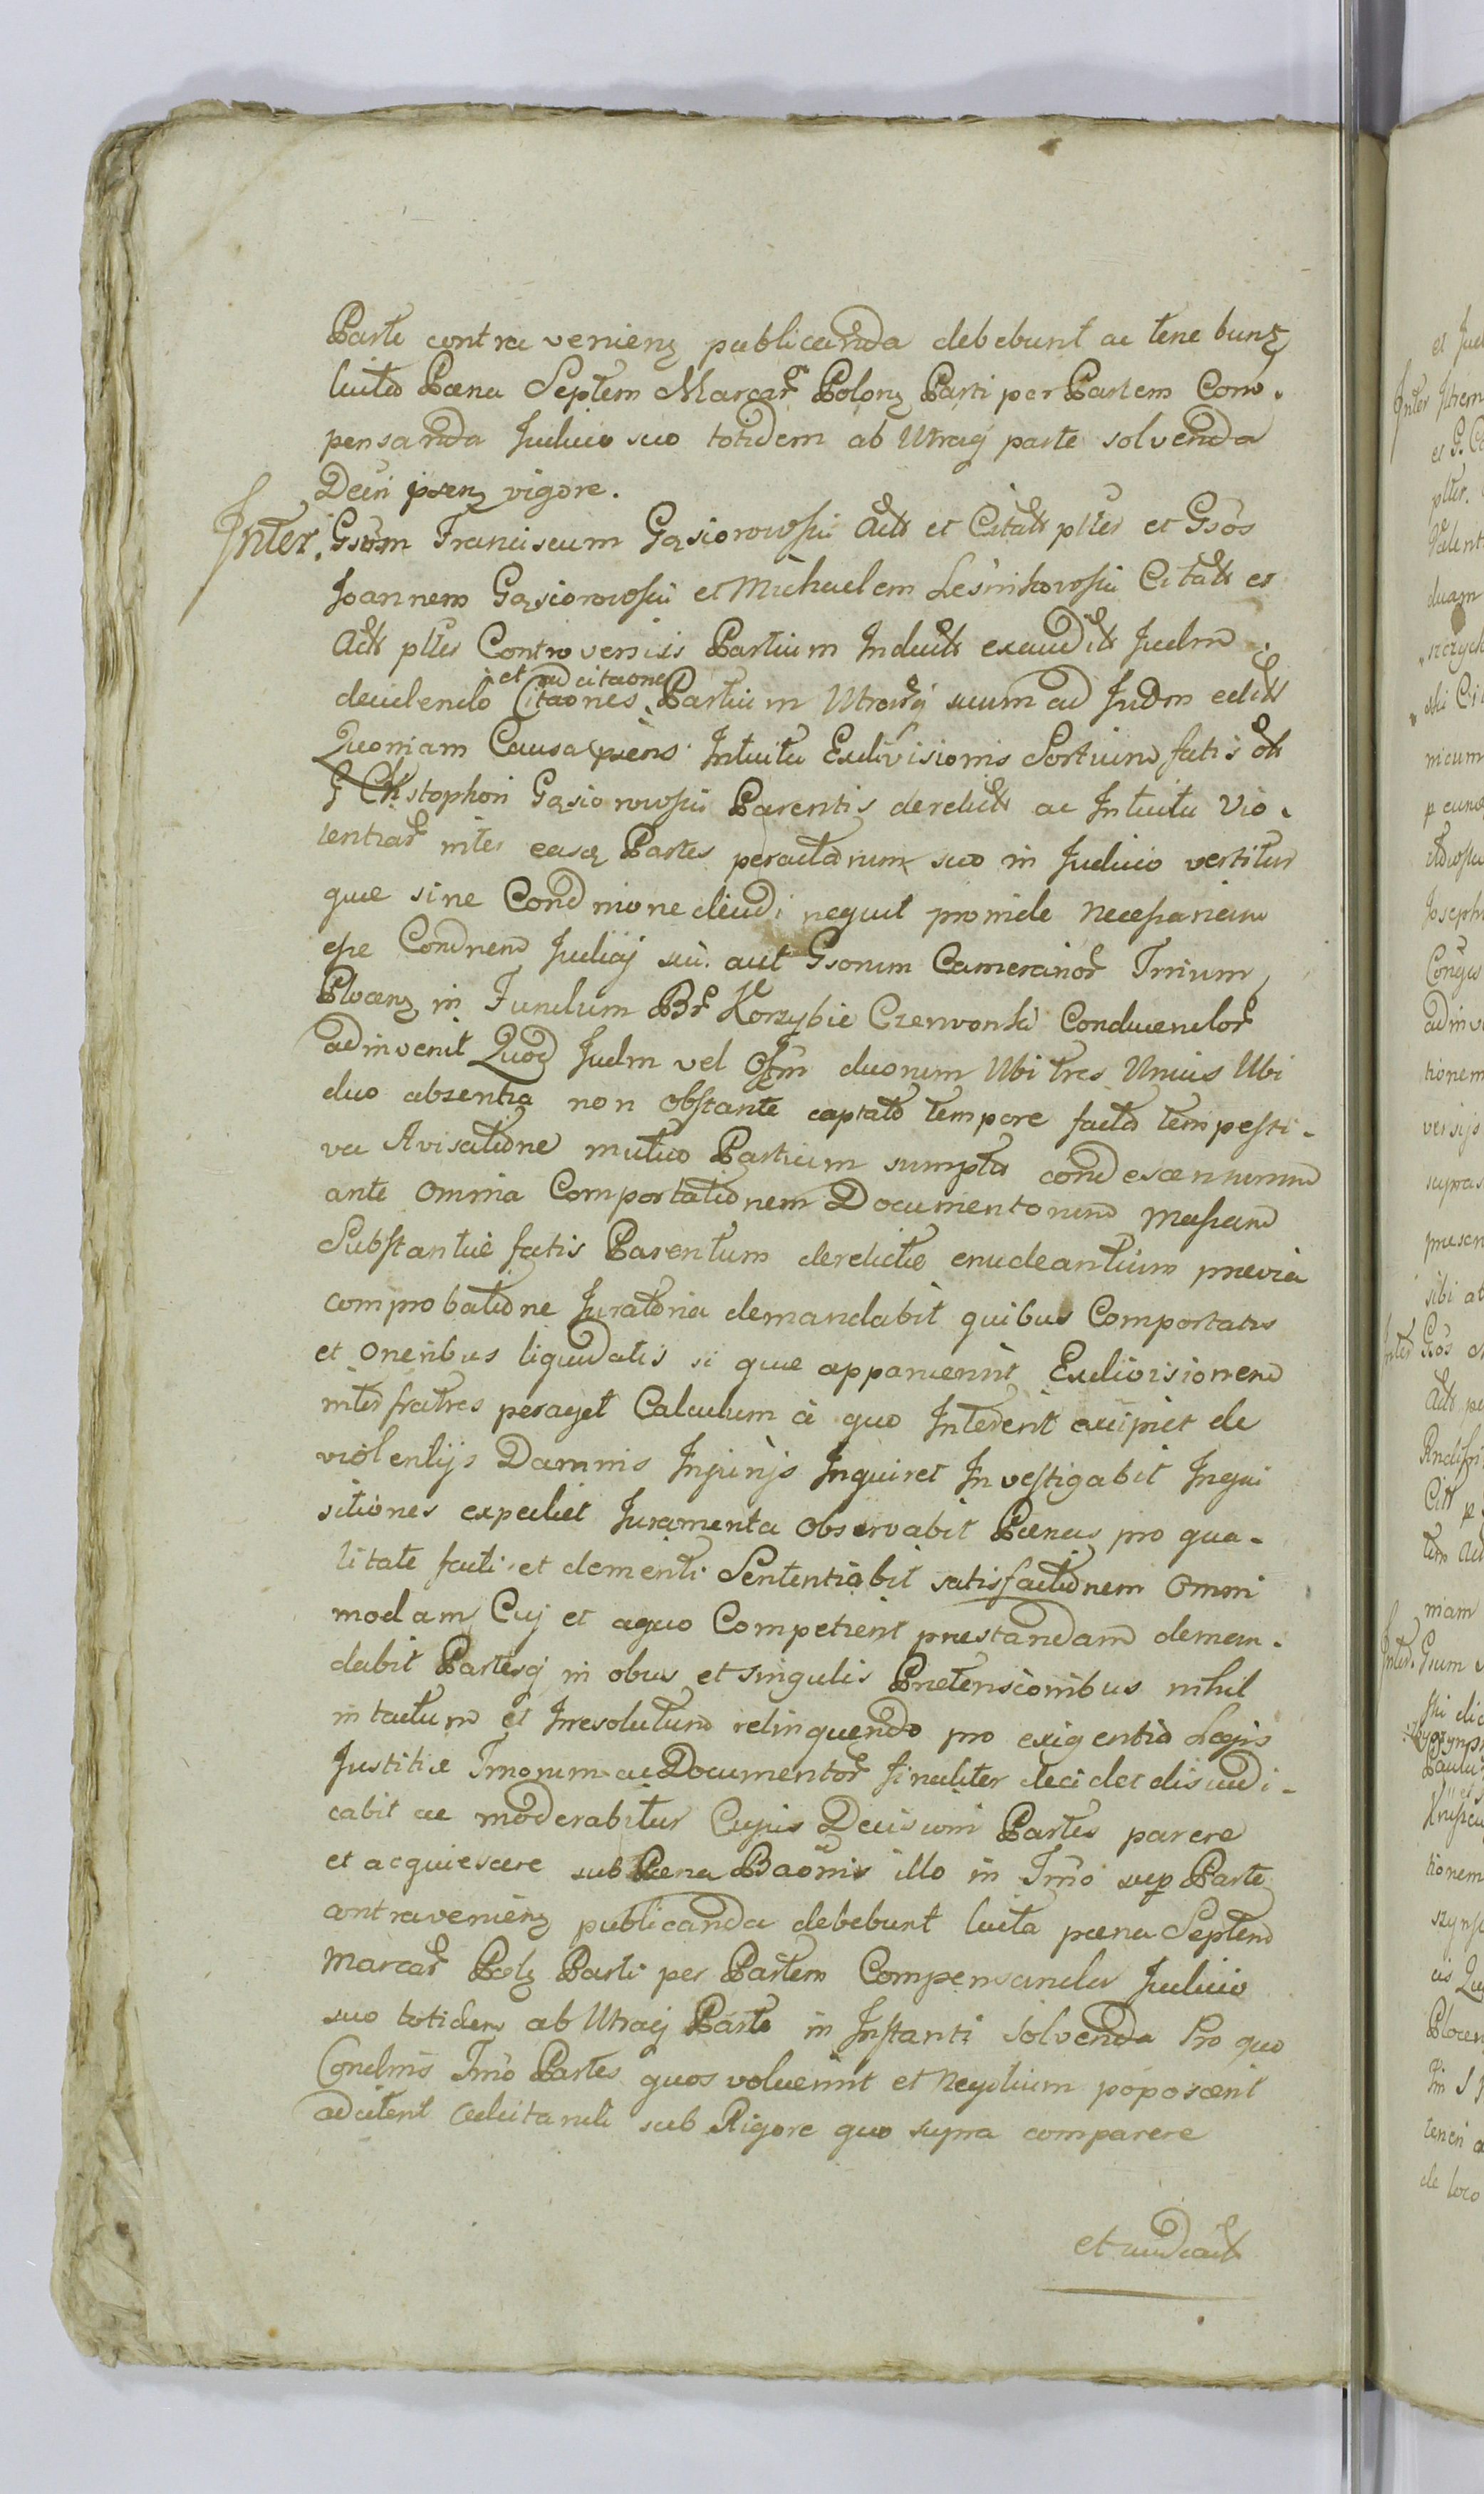 Parte contra venienz publicanda debebunt ac tene bunt
luita Paena Septem Marcar Polonz Parti per Partem Com.
pensanda Judicio suo totidem ab Utraq parte solvenda
Decri psenz vigore.
Inter. Gsum Franciscum Gąsiorowski Act et Citat pltes et Gsos
Joannem Gąsiorowski et Michaelem Leśnikowski Citat et
Act pltes Controversiis Partium Induct exaudit Judm
decidendo Citaones et adcitaone Partium Utrarq suum ad Judm edit
Quoniam Causa psens Intuitu Exdivisionis Sortium fatis olt
G Chstophori Gąsiorowski Parentis derelict ac Intuitu Vio.
lentiar inter easq Partes peractarum suo in Judicio vertitur
quae sine Condnione diudi nequit proinde necessariam
esse Condnem Judicij sui aut Gsorum Camerarior Trrium
Plocenz in Fundum Br Korzybie Czerwonki Conducendor
adinvenit Quod Judm vel Offm duorum Ubi tres Unius Ubi
duo absentia non obstante captato tempore facta tempesti-
va Avisatione mutuo Partium sumptu condescensurum
ante omnia Comportationem Documentorum Massam
Substantiae fatis Parentum derelictae enucleantium praevia
comprobatione Juratoria demandabit quibus Comportatis
et oneribus liquidatis si quae apparuerint Exdivisionem
inter fratres peraget Calculum à quo Intererit accipiet de
violentijs Damnis Injurijs Inquiret Investigabit Inqui
sitiones expediet Juramenta observabit Paenas pro qua-
litate facti et dementi Sententiabit satisfactionem omni
modam Cuj et aquo Competierit praestandam deman.
dabit Partesq in obus et singulis Praetensionibus nihil
intactum et Irresolutum relinquendo pro exigentia Legis
Justitiae Trmorum ac Documentor finaliter decidet disiudi-
cabit ac moderabitur Cujus Decisioni Partes parere
et acquiescere sub Paena Baonis illo in Trmo sup Parte
contravenienz publicanda debebunt luita paena Septem
Marcar Polz Parti per Partem Compensanda Judicio
suo totidem ab Utraq Parte in Instanti solvenda Pro quo
Condnis Trmo Partes quos voluerint et Negotium poposcerit
adcitent adcitandi sub Rigore quo supra comparere
et